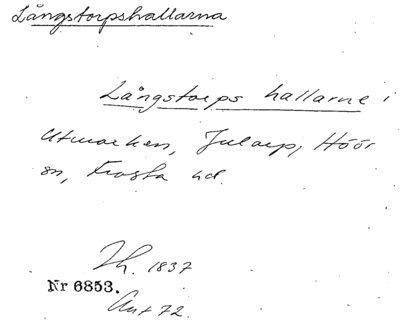 Långstorpshallarna
Långstorps hallarne i
Utmarken, Jularp, Höör
sn, Frosta hd.
Th. 1837
Nr 6853.
Ant 72.